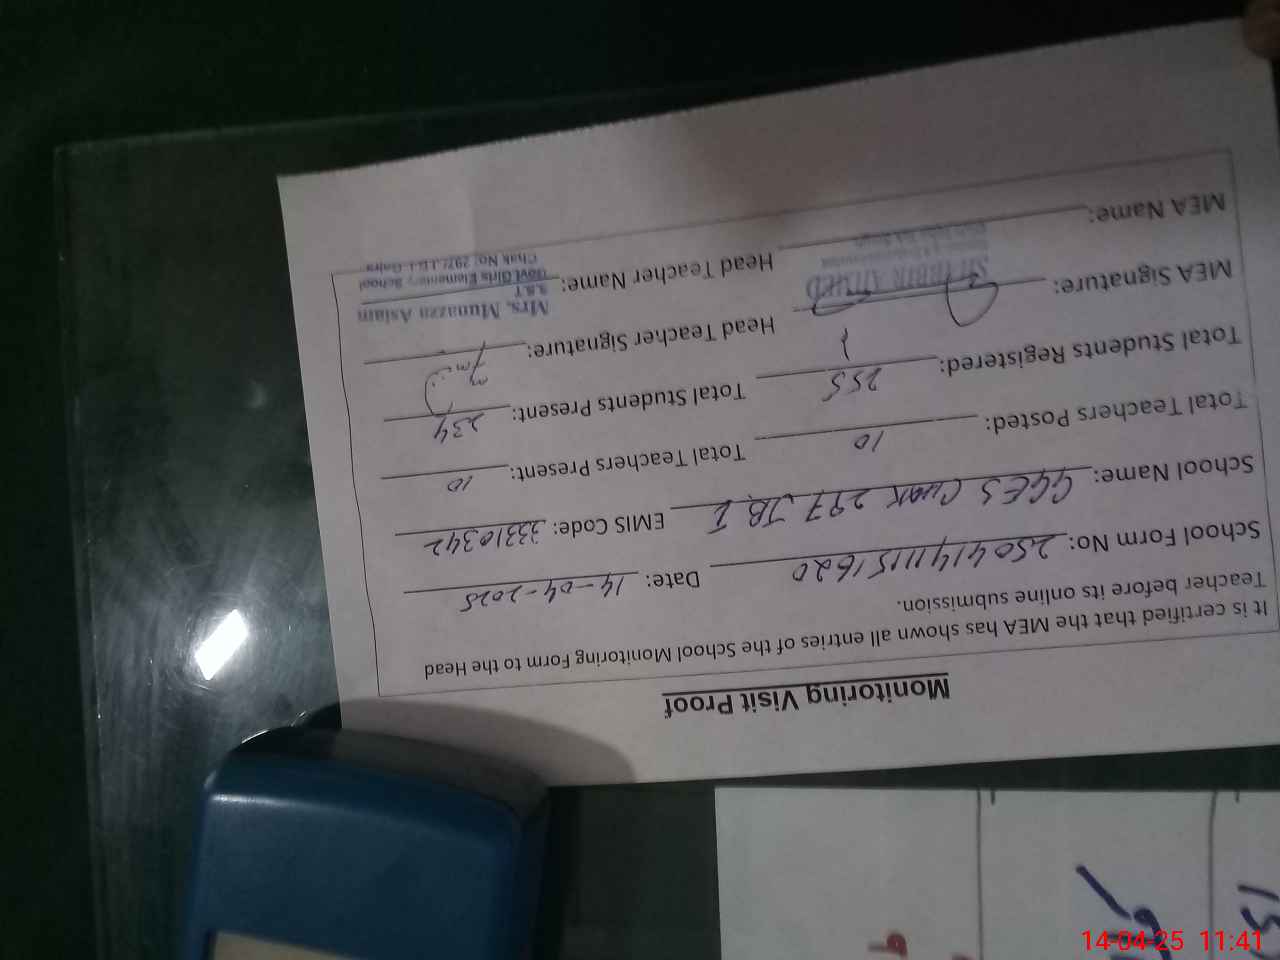 Monitoring Visit Proof
It is certified that the MEA has shown all entries of the School Monitoring Form to the Head
Teacher before its online submission.
School Form No: 25041411151620 Date: 14-04-2025
School Name: GGES CHAK 297 JB I EMIS Code: 33310342
Total Teachers Posted: 10 Total Teachers Present: 10
Total Students Registered: 255 Total Students Present: 234
MEA Signature: Head Teacher Signature:
SHABBIR AHMED Mrs. Munazza Aslam
S.S.T
MEA Name: Head Teacher Name: Govt Girls Elementary School
Chak No. 297/J.B-I Gojra
14-04-25 11:41